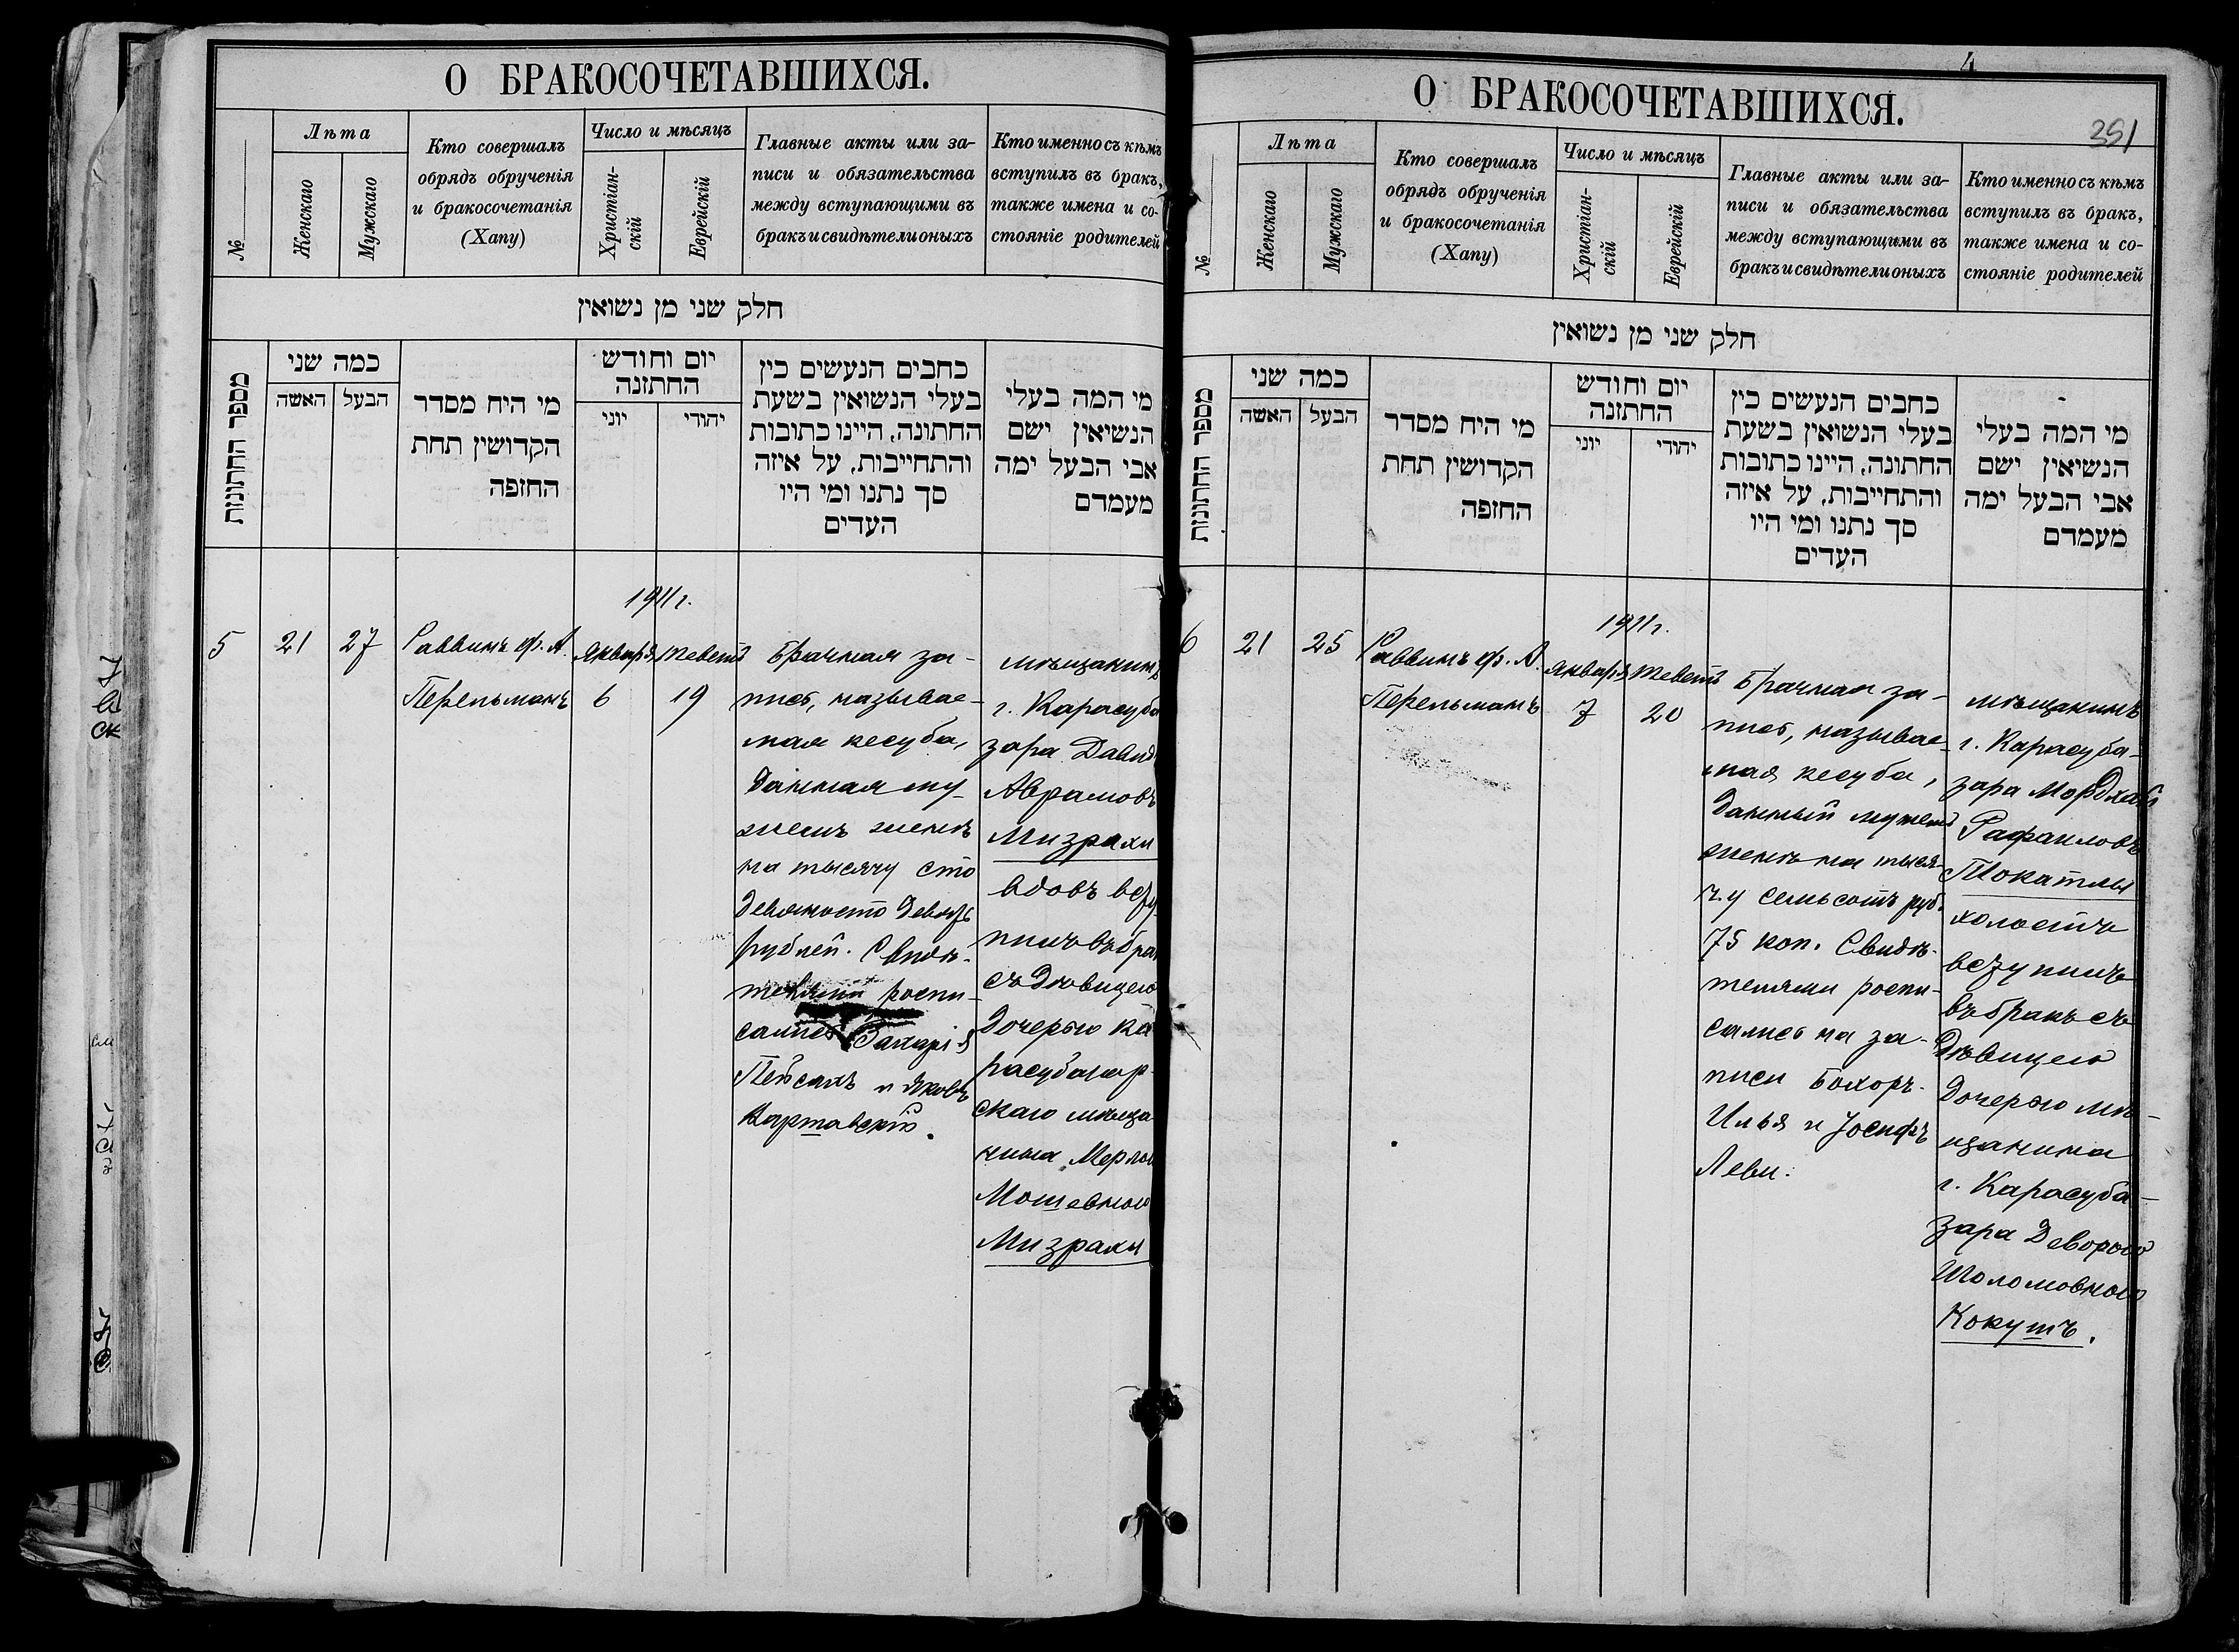 О БРАКОСОЧЕТАВШИХСЯ.
№
Лѣта
Женскаго
Мужскаго
Кто совершалъ
обрядъ обрученія
и бракосочетанія
(Хапу)
Число и мѣсяцъ
Христіан-
скій
Еврейскій
Главные акты или за-
писи и обязательства
между вступающими въ
бракъ и свидѣтели оныхъ
Кто именно съ кѣмъ
вступилъ въ бракъ,
также имена и со-
стояніе родителей
חלק שני מן נשואין
מספר החתונות
כמה שני
האשה
הבעל
מי היח מסדר
הקדושין תחת
החזפה
יום וחודש
החתזנה
יוני
יהודי
כחבים הנעשים כין
בעלי הנשואין בשעת
החתונה, היינו כתובות
והתחייבות, על איזה
סך נתנו ומי היו
העדים
מי המה בעלי
הנשיאין ישם
אבי הבעל ימה
מעמדם
5
21
27
Раввинъ ф. А.
Перельманъ
1911 г.
Января
6
Теветъ
19
Брачная за-
пись, называе-
мая кесуба,
данная му-
жемъ женѣ
на тысячу сто
девяносто девять
рублей. Свидѣ-
телями роспи-
сались Захарія
Пейсахъ и Яковъ
Варшавскій.
мѣщанинъ
г. Карасуба
зара Давидъ
Аврамовъ
Мизрахи
вдовъ всту
пилъ въ бра
съ дѣвицею
дочерью ка
расубазар
скаго мѣща
нина
Мошевною
Мизрахи
О БРАКОСОЧЕТАВШИХСЯ.
4
351
№
Лѣта
Женскаго
Мужскаго
Кто совершалъ
обрядъ обрученія
и бракосочетанія
(Хапу)
Число и мѣсяцъ
Христіан-
скій
Еврейскій
Главные акты или за-
писи и обязательства
между вступающими въ
бракъ и свидѣтели оныхъ
Кто именно съ кѣмъ
вступилъ въ бракъ,
также имена и со-
стояніе родителей
חלק שני מן נשואין
מספר החתונות
כמה שני
האשה
הבעל
מי היח מסדר
הקדושין תחת
החזפה
יום וחודש
החתזנה
יוני
יהודי
כחבים הנעשים כין
בעלי הנשואין בשעת
החתונה, היינו כתובות
והתחייבות, על איזה
סך נתנו ומי היו
העדים
מי המה בעלי
הנשיאין ישם
אבי הבעל ימה
מעמדם
6
21
25
Раввинъ ф. А.
Перельманъ
1911 г.
Января
7
Теветъ
20
Брачная за-
пись, называе-
мая кесуба,
данный мужемъ
женѣ на тыся-
чу семьсотъ руб.
75 коп. Свидѣ-
телями роспи-
сались на за-
писи Бохоръ-
Илья и Іосифъ
Леви.
мѣщанинъ
г. Карасуба-
зара Мордхай
Рафаиловъ
Токатлы
холостъ
вступилъ
въ бракъ съ
дѣвицею
дочерью мѣ-
щанина
г. Карасуба-
зара Деворою
Шоломовною
Кокушъ.